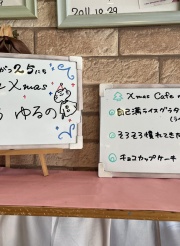 2011.10.29
がつ25にち
Xmas
ゆるの
Xmas Cafe
自己満ライスグラタ
そろそろ慣れてきた
チョコカップケーキ